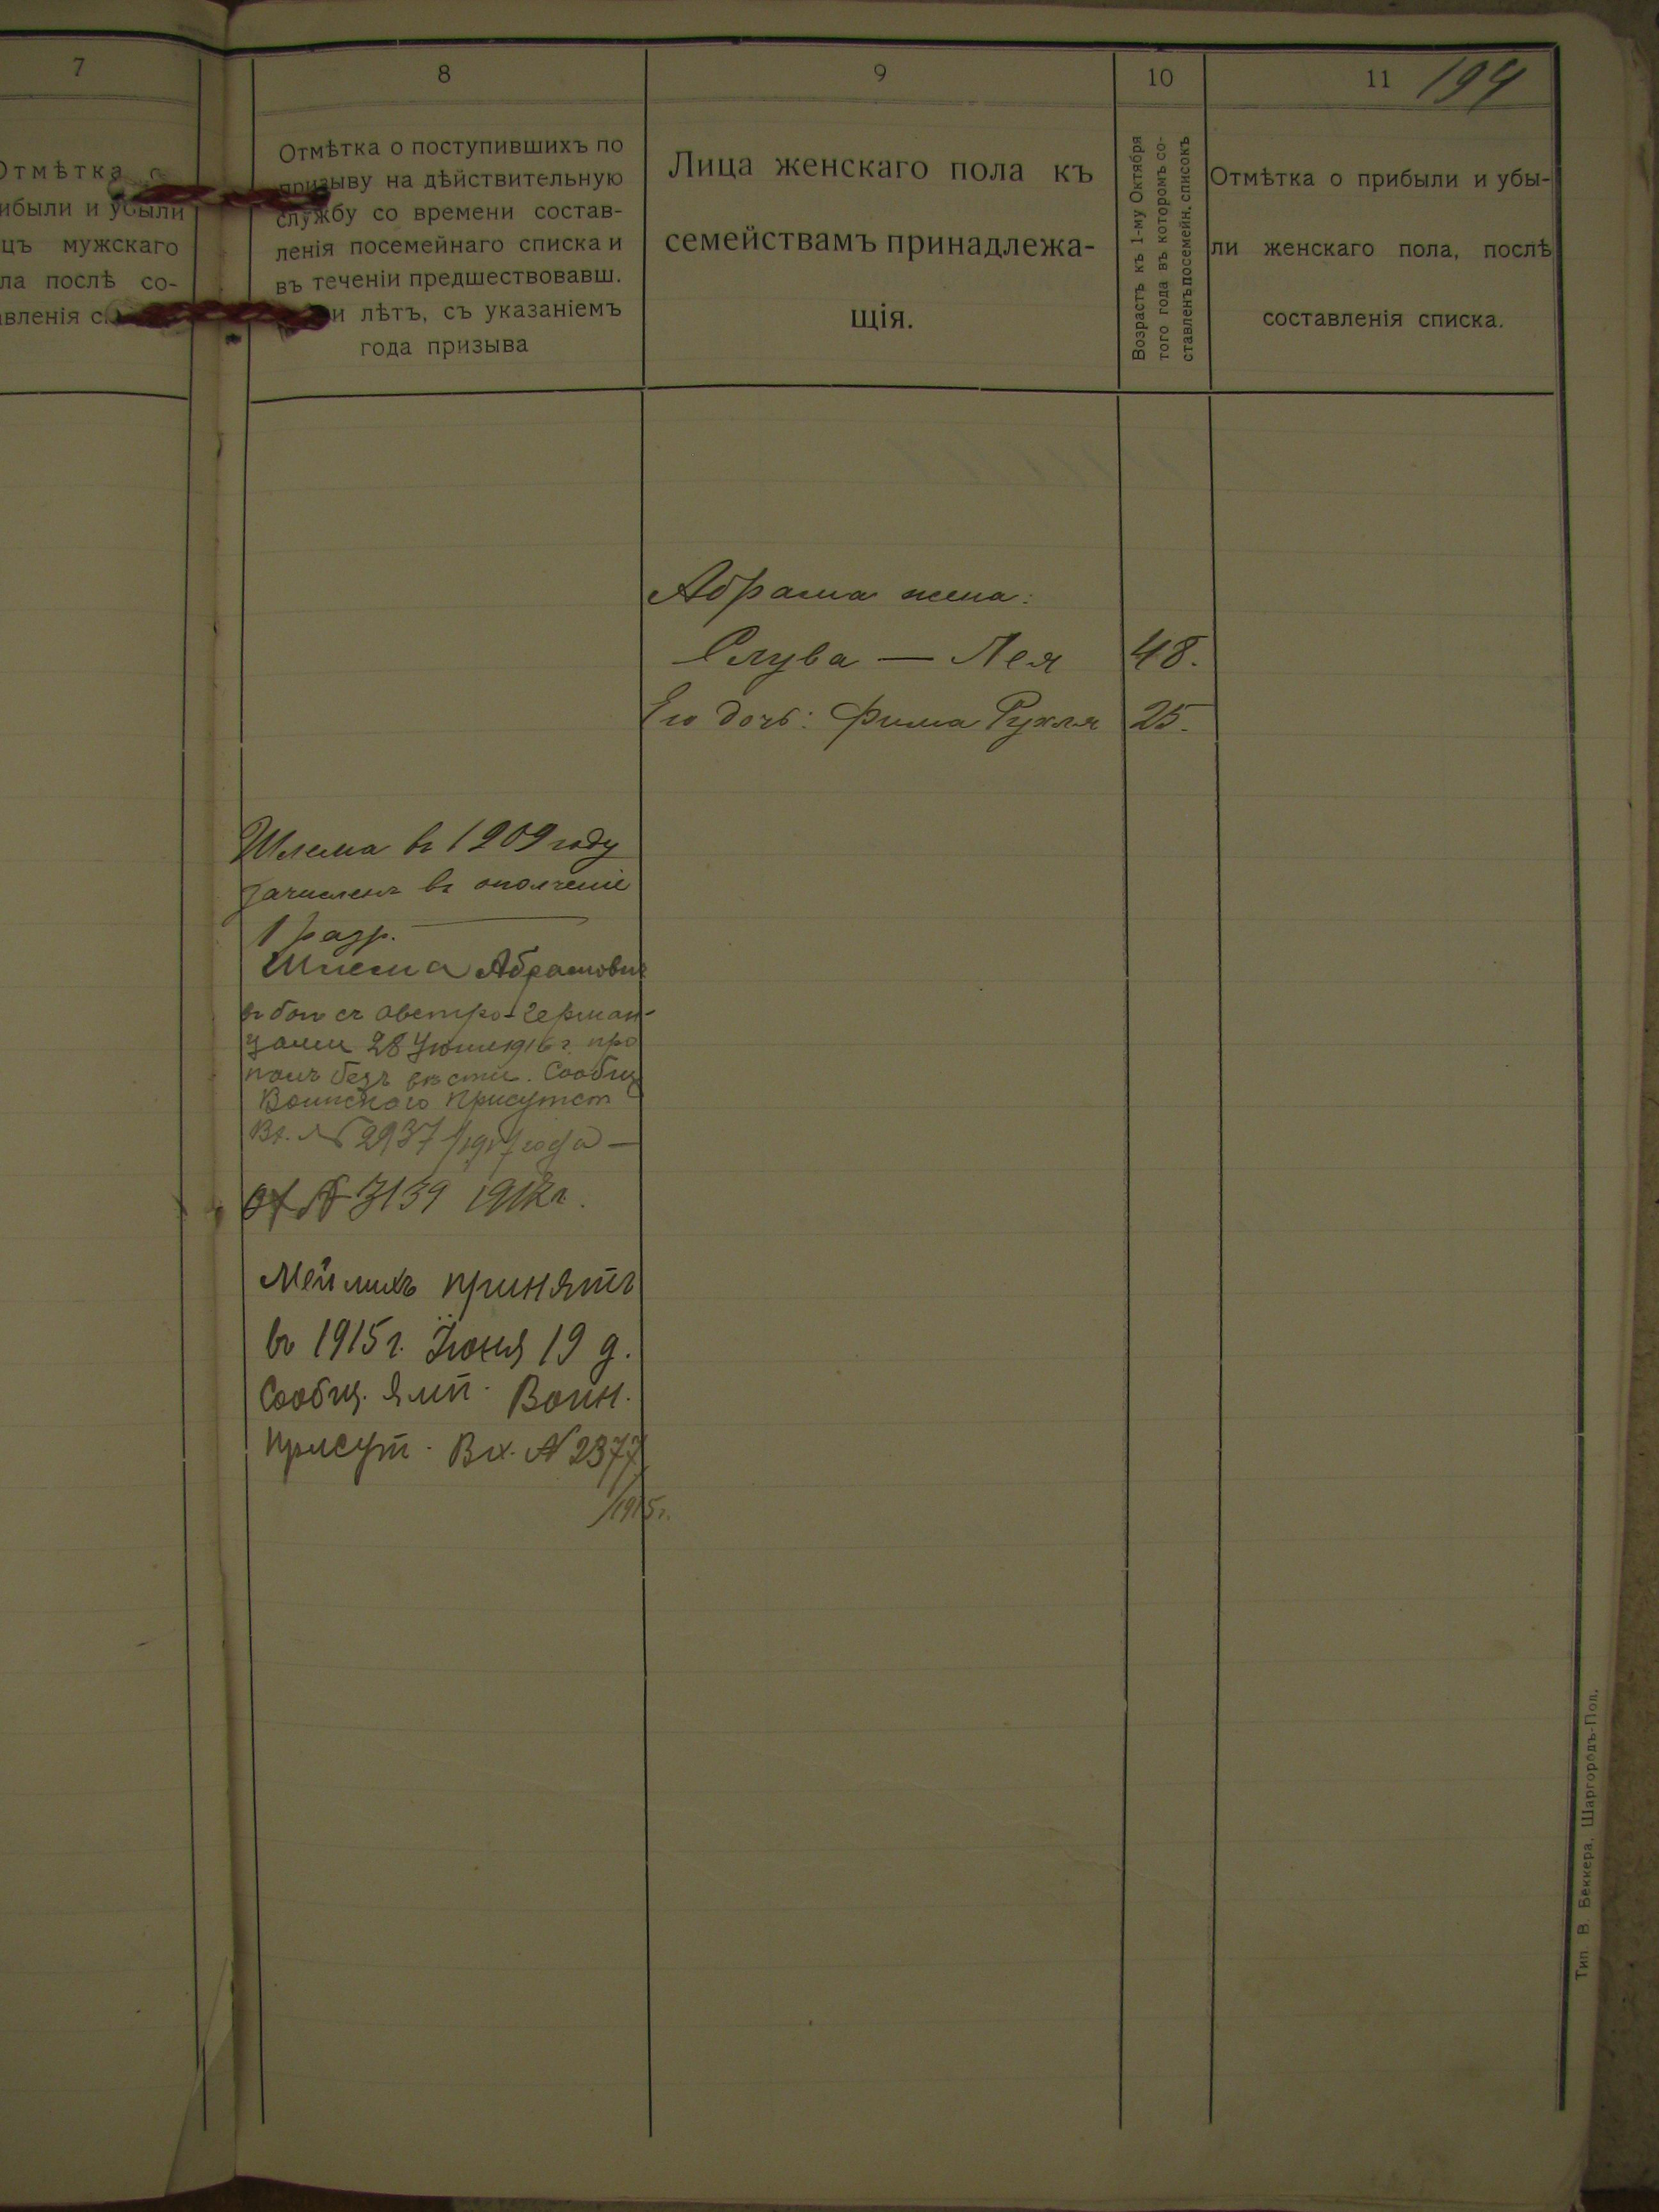 7
Отмѣтка о
ибыли и убыли
цъ мужскаго
ла послѣ со-
авленія с
8
Отмѣтка о поступившихъ по
призыву на дѣйствительную
службу со времени состав-
ленія посемейнаго списка и
въ теченіи предшествовавш.
и лѣтъ, съ указаніемъ
года призыва
9
Лица женскаго пола къ
семействамъ принадлежа-
щія.
10
Возрастъ къ 1-му Октября
того года въ которомъ со-
ставленъ посемейн. списокъ
11
194
Отмѣтка о прибыли и убы-
ли женскаго пола, послѣ
составленія списка.
Абрама жена:
Слува — Лея 48.
Его дочь: Фима Рухля 25.
Шлема въ 1909 году
зачисленъ въ ополченіе
1 разр.
Шлема Абрамович
в бою съ австро-герман-
цами 28 1916 г. про
палъ безъ вѣсти. Сообщ
Воинского Присутст
Вх. № 2937
№ 3139
Мейлихъ принятъ
въ 1915 г. Іюня 19 д.
Сообщ. Ямп. Воин.
Присут. Вх. № 2377
/1915 г.
Тип. В. Беккера, Шаргородъ-Под.